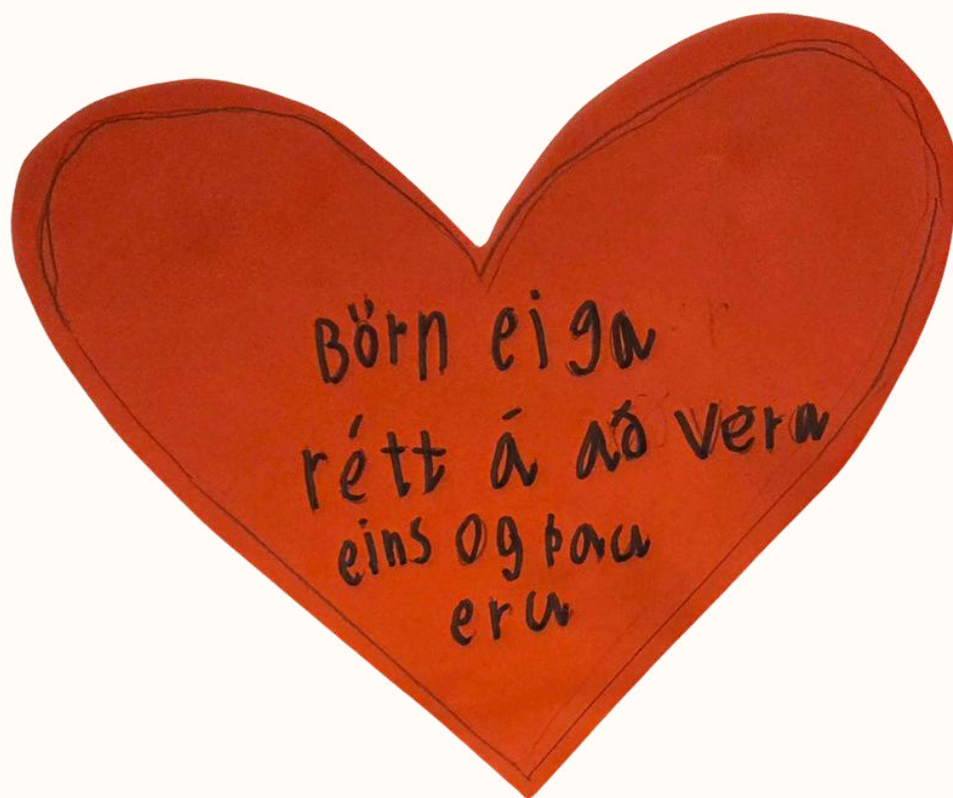 Börn eiga
rétt á að vera
eins og þau
eru